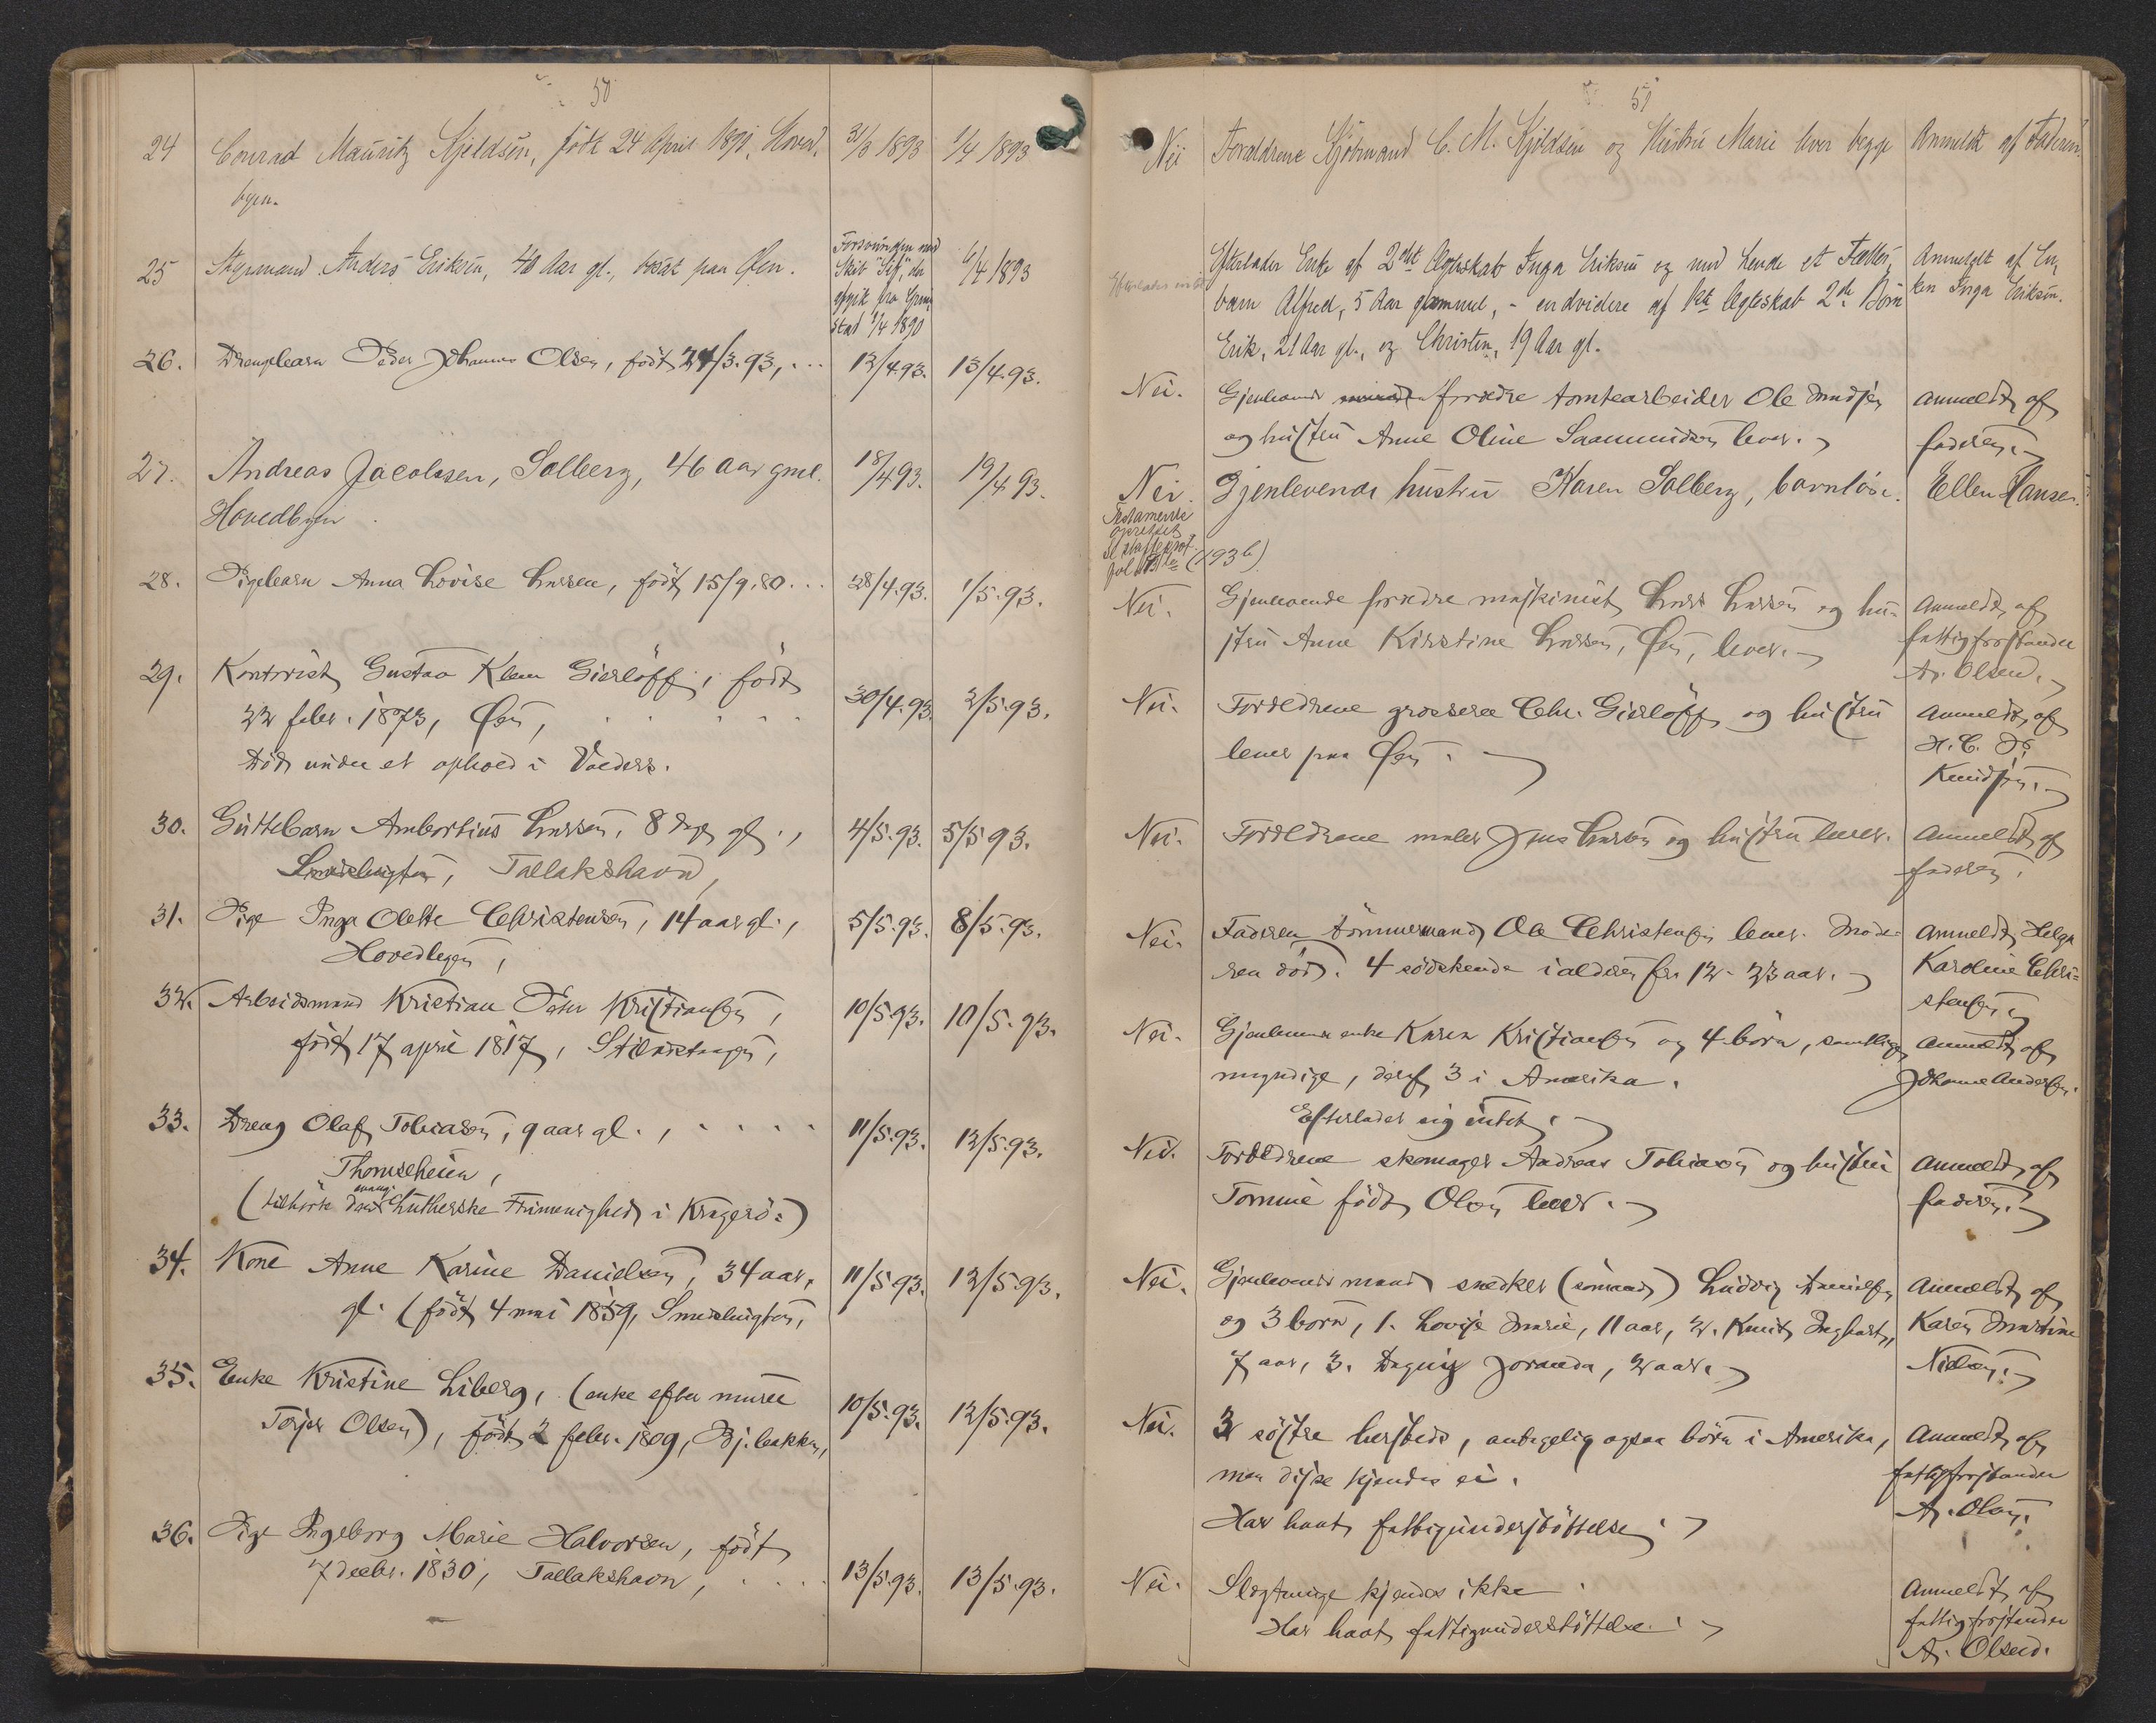 50
24 Conrad Mauritz Kjeldsen, født 24 April 1891, Hoved, 31/3 1893 1/4 1893
byen.
25 Styrmand Anders Eriksen, 40 Aar gl., bosat paa Øen. Forsvunden med 6/4 1893
Skib "Sif", der
afgik fra Grim
stad 1/4 1890
26. Drengebarn Peder Johannes Olsen, født 27/3.93, ... 12/4.93. 13/4.93.
27. Andreas Jacobsen, Solberg, 46 Aar gml. 18/4 93. 19/4 93.
Hovedbyen.
28. Pigebarn Anna Lovise Larsen, født 15/9.80... 28/4.93. 1/5.93.
29. Kontorist Gustav Klem Gierløff, født
22 febr. 1873, Øen, 30/4.93. 2/5.93.
død under et ophold i Valders.
30. Guttebarn Ambortius Larsen, 8 dage gl., 4/5.93. 5/5 93.
Tallakshavn,
31. Pige Inga Olette Christensen, 14 aar gl., 5/5.93. 8/5.93.
Hovedbyen,
32. Arbeidsmand Kristian Peter Kristiansen, 10/5.93. 10/5.93.
født 17 april 1817,
33. Dreng Olaf Tobiasen, 9 aar gl., 11/5.93. 12/5.93.
Thomseheien,
(tilhørte den evang. Lutherske Frimenighed i Kragerø:)
34. Kone Anne Karine Danielsen, 34 aar, 11/5.93. 12/5.93.
gl. (født 4 mai 1859, Smedbugten,
35. Enke Kristine Liberg, (enke efter murer
Torjer Olsen), født 2 febr. 1809, Bj.bakken, 10/5.93. 12/5.93.
36. Pige Ingeborg Marie Halvorsen, født
7 decbr. 1830, Tallakshavn, 13/5.93. 13/5.93.
51
Nei Forældrene Sjømand C. M. Kjeldsen og Hustru Marie lever begge Anmeldt af Faderen.
Efterlader Enke af 2det Ægteskab Inga Eriksen og med hende et Fælles, Anmeldt af En,
barn Alfred, 5 Aar gammel, - endvidere af 1ste Ægteskab 2de Børn ken Inga Eriksen.
Erik, 21 Aar gl., og Christen, 19 Aar gl.
Nei. Gjenlevende forældre tomtearbeider Ole Amundsen anmeldt af
og hustru Anne Oline Saamundsen lever. faderen.
Nei. Gjenlevende hustru Karen Solberg, barnløs. Ellen Hansen.
Testamente
oprettet
(1936)
Nei. Gjenlevende forældre maskinist Lars Larsen og hu= Anmeldt af
stru Anne Kirstine Larsen, Øen, lever. fattigforstander
A. Olsen.
Nei. Forældrene grosserer Chr. Gierløff og hustru Anmeldt af
lever paa Øen. H. C.
Knudsen.
Nei. Forældrene maler Jens Larsen og hustru lever. Anmeldt af
faderen.
Nei. Faderen tømmermand Ole Christensen lever. Mode= Anmeldt Helga
ren død. 4 sødskende i alderen fra 12-23 aar. Karoline Chri=
stensen
Nei. Gjenlevende enke Karen Kristiansen og 4 børn, samtlige Anmeldt af
myndige, deraf 3 i Amerika. Johanne Andersen.
Efterlader sig intet.
Nei. Forældrene skomager Andreas Tobiasen og hustru Anmeldt af
Tomine født Olsen lever. faderen.
Nei. Gjenlevende mand snedker (sømand) Ludvig Danielsen Anmeldt af
og 3 børn, 1. Lovise Marie, 11 aar, 2. Knut Inghart, Karen Martine
7 aar, 3. Dagny Joranda, 2 aar. Nielsen.
Nei. 3 søstre hersteds, antagelig ogsaa børn i Amerika, Anmeldt af
men disse kjendes ei. fattigforstander
Har havt fattigunderstøttelse. A. Olsen.
Nei. Slægtninge kjendes ikke. Anmeldt af
Har havt fattigunderstøttelse. fattigforstander
A. Olsen.